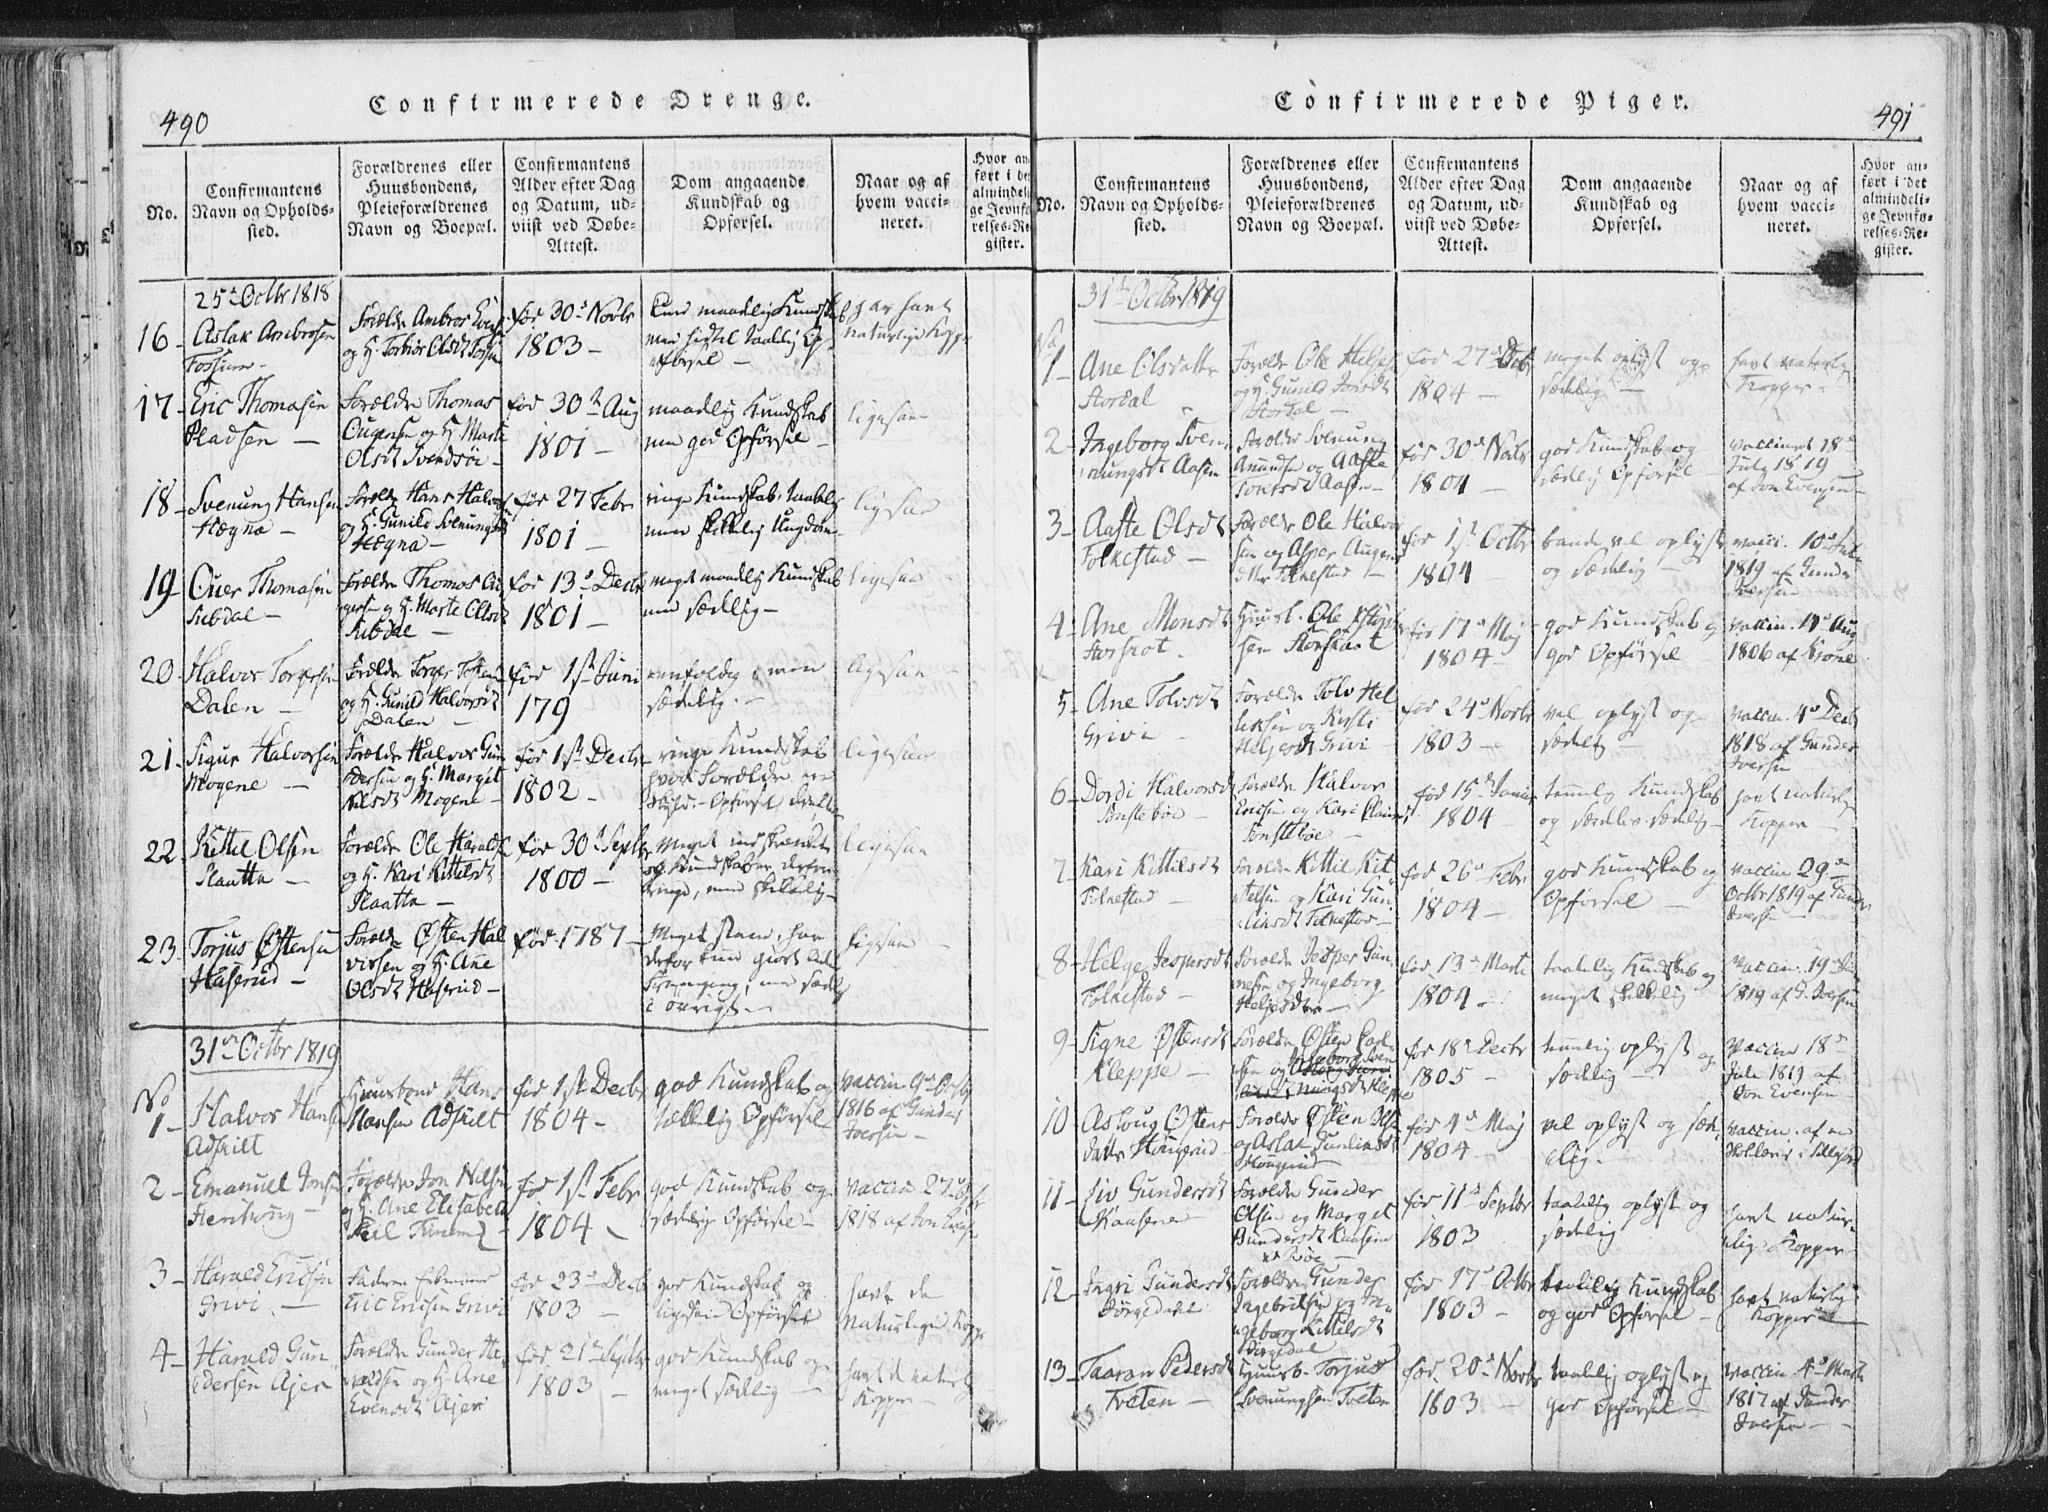 490
Confirmerede Drenge.
No.
Confirmantens Navn og Opholds-sted.
Forældrenes eller Huusbondens, Pleieforældrenes Navn og Boepæl.
Confirmantens Alder efter Dag og Datum, ud-viist ved Døbe-Attest.
Dom angaaende Kundskab og Opførsel.
Naar og af hvem vacci-neret.
Hvor an-ført i det almindeli-ge Jevnfø-relses-Re-gister.
25de Octbr 1818
16 Aslak Ambrosen Fossum
Forældre Ambros og H. Torbiør Olsdt Fossum
før 30d Novbr 1803
Kund maadlig Kundskab men hidtil taalig Opførsel
har havt naturlige Kopper
17 Eric Thomasen Pladsen
Forældre Thomas og H. Marte Olsdt Svendsøi
før 30te Aug 1801
maadlig Kundskab men god Opførsel
ligesaa
18 Svenung Hansen Hægna
Forældre Hans Halvors og H. Gunild Svenungsdt Hægna
før 27 Febr 1801
ringe Kundskab, men skikkelig Ungdom
ligesaa
19 Thomasen
Forældre Thomas og H. Marte Olsdt
før 13d Decbr 1801
meget maadlig Kundskab men sædelig
ligesaa
20 Halvor Torgersen Dalen
Forældre Torger og H. Gunild Halvorsdt Dalen
før 1ste Juni 179
eenfoldig, men sædelig
ligesaa
21 Sigur Halvorsen Mogene
Forældre Halvor Gundersen og H. Margit Nilsdt Mogene
før 1ste Decbr 1802
ringe Kundskab Forældre Opførsel
ligesaa
22 Kittil Olsen Slaatta
Forældre Ole Harald og H. Kari Kittilsdt Slaatta
før 30te Septbr 1800
Meget indskrænket og Kundskaber derfor ringe, men skikkelig
ligesaa
23 Torjus Østensen Haserud
Forældre Østen Halvorsen og H. Ane Olsdt Haserud
fød 1787
Meget sløv, har derfor kun giort men i øvrigt
ligesaa
31te Octbr 1819
No
1 Halvor Hansen Adskilt
Huusbond Hans Hansen Adskilt
før 1ste Decbr 1804
god Kundskab og Opførsel
vaccin 9de 1816 af Gunder Iversen
2 Emanuel Jonsen
Forældre Jon Nilsen og H. Ane Elisabeth
før 1ste Febr 1804
god Kundskab og sædelig Opførsel
vaccin 27 1818 af Jon Evensen
3 Harald Ericsen Grivi
Faderen Eric Ericsen Grivi
før 23de Decbr 1803
god Kundskab og ligesaa Opførsel
havt de Naturlige Kopper
4 Harald Gundersen Ajer
Forældre Gunder Haraldsen og H. Ane Evensdt Ajer
før 21de Septbr 1803
god Kundskab og meget sædelig
havt de naturl Kopper
491
Confirmerede Piger.
No.
Confirmantens Navn og Opholds-sted.
Forældrenes eller Huusbondens, Pleieforældrenes Navn og Boepæl.
Confirmantens Alder efter Dag og Datum, ud-viist ved Døbe-Attest.
Dom angaaende Kundskab og Opførsel.
Naar og af hvem vacci-neret.
Hvor an-ført i det almindeli-ge Jevnfø-relses-Re-gister.
31te Octbr 1819
No
1 Ane Olsdatter Stordal
Forældre Ole og H. Gunild Stordal
før 27de 1804
meget oplyst og sædelig
havt naturlig Kopper
2 Ingeborg Svenungsdt Aasen
Forældre Svenung Amundsen og Aaste Aasen
før 30d Novbr 1804
god Kundskab og sædelig Opførsel
vaccineret 18de July 1819 af Jon Evensen
3 Aaste Olsdt Folkestad
Forældre Ole Halvorsen og Asper Folkestad
før 1ste Octbr 1804
bande vel oplyst og sædelig
vacci. 10de Jula 1819 af Gunder Iversen
4 Ane Monsdt
Huusb. Ole
før 17de Maj 1804
god Kundskab og god Opførsel
vaccin. 11de Aug 1806 af
5 Ane Tolvsdt Grivi
Forældre Tolv Helliksen og Kirsti Grivi
før 24de Novbr 1803
vel oplyst og sædelig
vaccin. 4de Decbr 1818 af Gunder Iversen
6 Dordi Halvorsdt Sønstebøe
Forældre Halvor Ericsen og Kari Sønstebøe
fød 15de Januar 1804
temmelig Kundskab og sædelig
havt naturlige Kopper
7 Kari Kittilsdt Folkestad
Forældre Kittil Kittelsen og Kari Gunleiksdt Folkestad
før 26de Febr 1804
god Kundskab og Opførsel
vaccin 29de Octbr 1819 af Gunder Iversen
8 Helge Jespersdt Folkestad
Forældre Jesper Gunnesen og Ingeborg Heljesdtr
før 13de Marts 1804
taalelig Kundskab og meget skikkelig
Vaccin. 19de 1819 af G. Iversen
9 Signe Østensdt Kleppe
Forældre Østen og Ingeborg Svenungsdt Kleppe
før 18de Decbr 1805
temmelig oplyst og sædelig
Vaccin 18de Jula 1819 af Jon Evensen
10 Asloug Østensdatter Hougerud
Forældre Østen Olsen og Aslak Gunleiksdt Hougerud
før 4de Maj 1804
vel oplyst og sædelig
vaccin. af en i Silljord
11 Liv Gundersdt Kaasene
Forældre Gunder Olsen og Margit Gundersdt Kaasene
før 11de Septbr 1803
taalelig oplyst og sædelig
havt naturlige Kopper
12 Ingri Gundersdt Jørgedal
Forældre Gunder Ingebrithsen og Ingeborg Kittilsdt Jørgedal
før 17de Octbr 1803
taalelig Kundskab og god Opførsel
havt naturlig Kopper
13 Taaran Pedersdt Tveten
Huusb. Torjus Svenungsen Tveten
før 20de Novbr 1803
taalelig oplyst og god Opførsel
vaccin. 4de Marts 1817 af Gunder Iversen